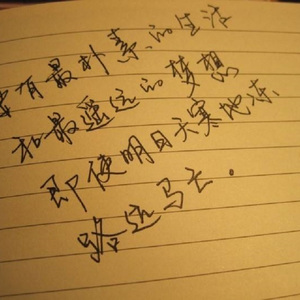 有最朴素的生活
和最遥远的梦想
即使明日天寒地冻
路远马亡.